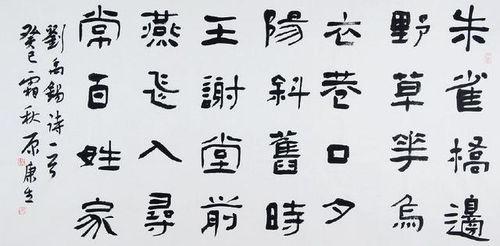 朱雀橋邊
野草花烏
衣巷口夕
陽斜舊時
王謝堂前
燕飞入尋
常百姓家
劉禹錫詩一首
癸巳霜秋原康生